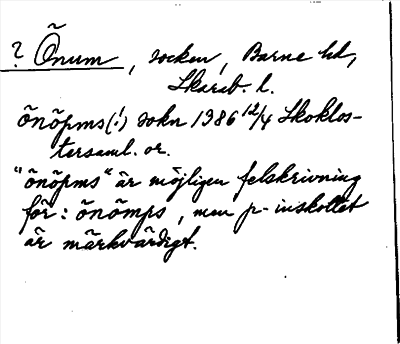 ? Önum, socken, Barne hd,
Skarab. l.
önöpms(!) sokn 1386 12/4 Skoklos-
tersaml. or.
"önöpms" är möjligen felskrivning
för: önömps, men p-inskottet
är märkvärdigt.